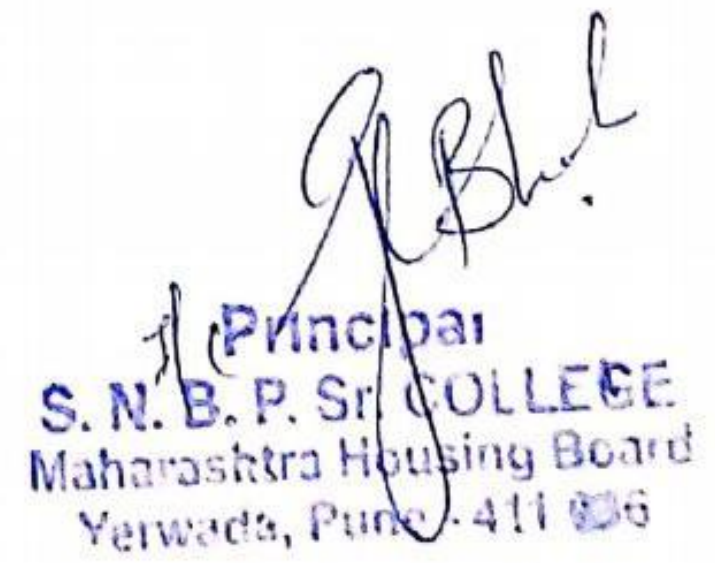 I/c Principal
S. N. B. P. Sr. COLLEGE
Maharashtra Housing Board
Yerwada, Pune - 411 006